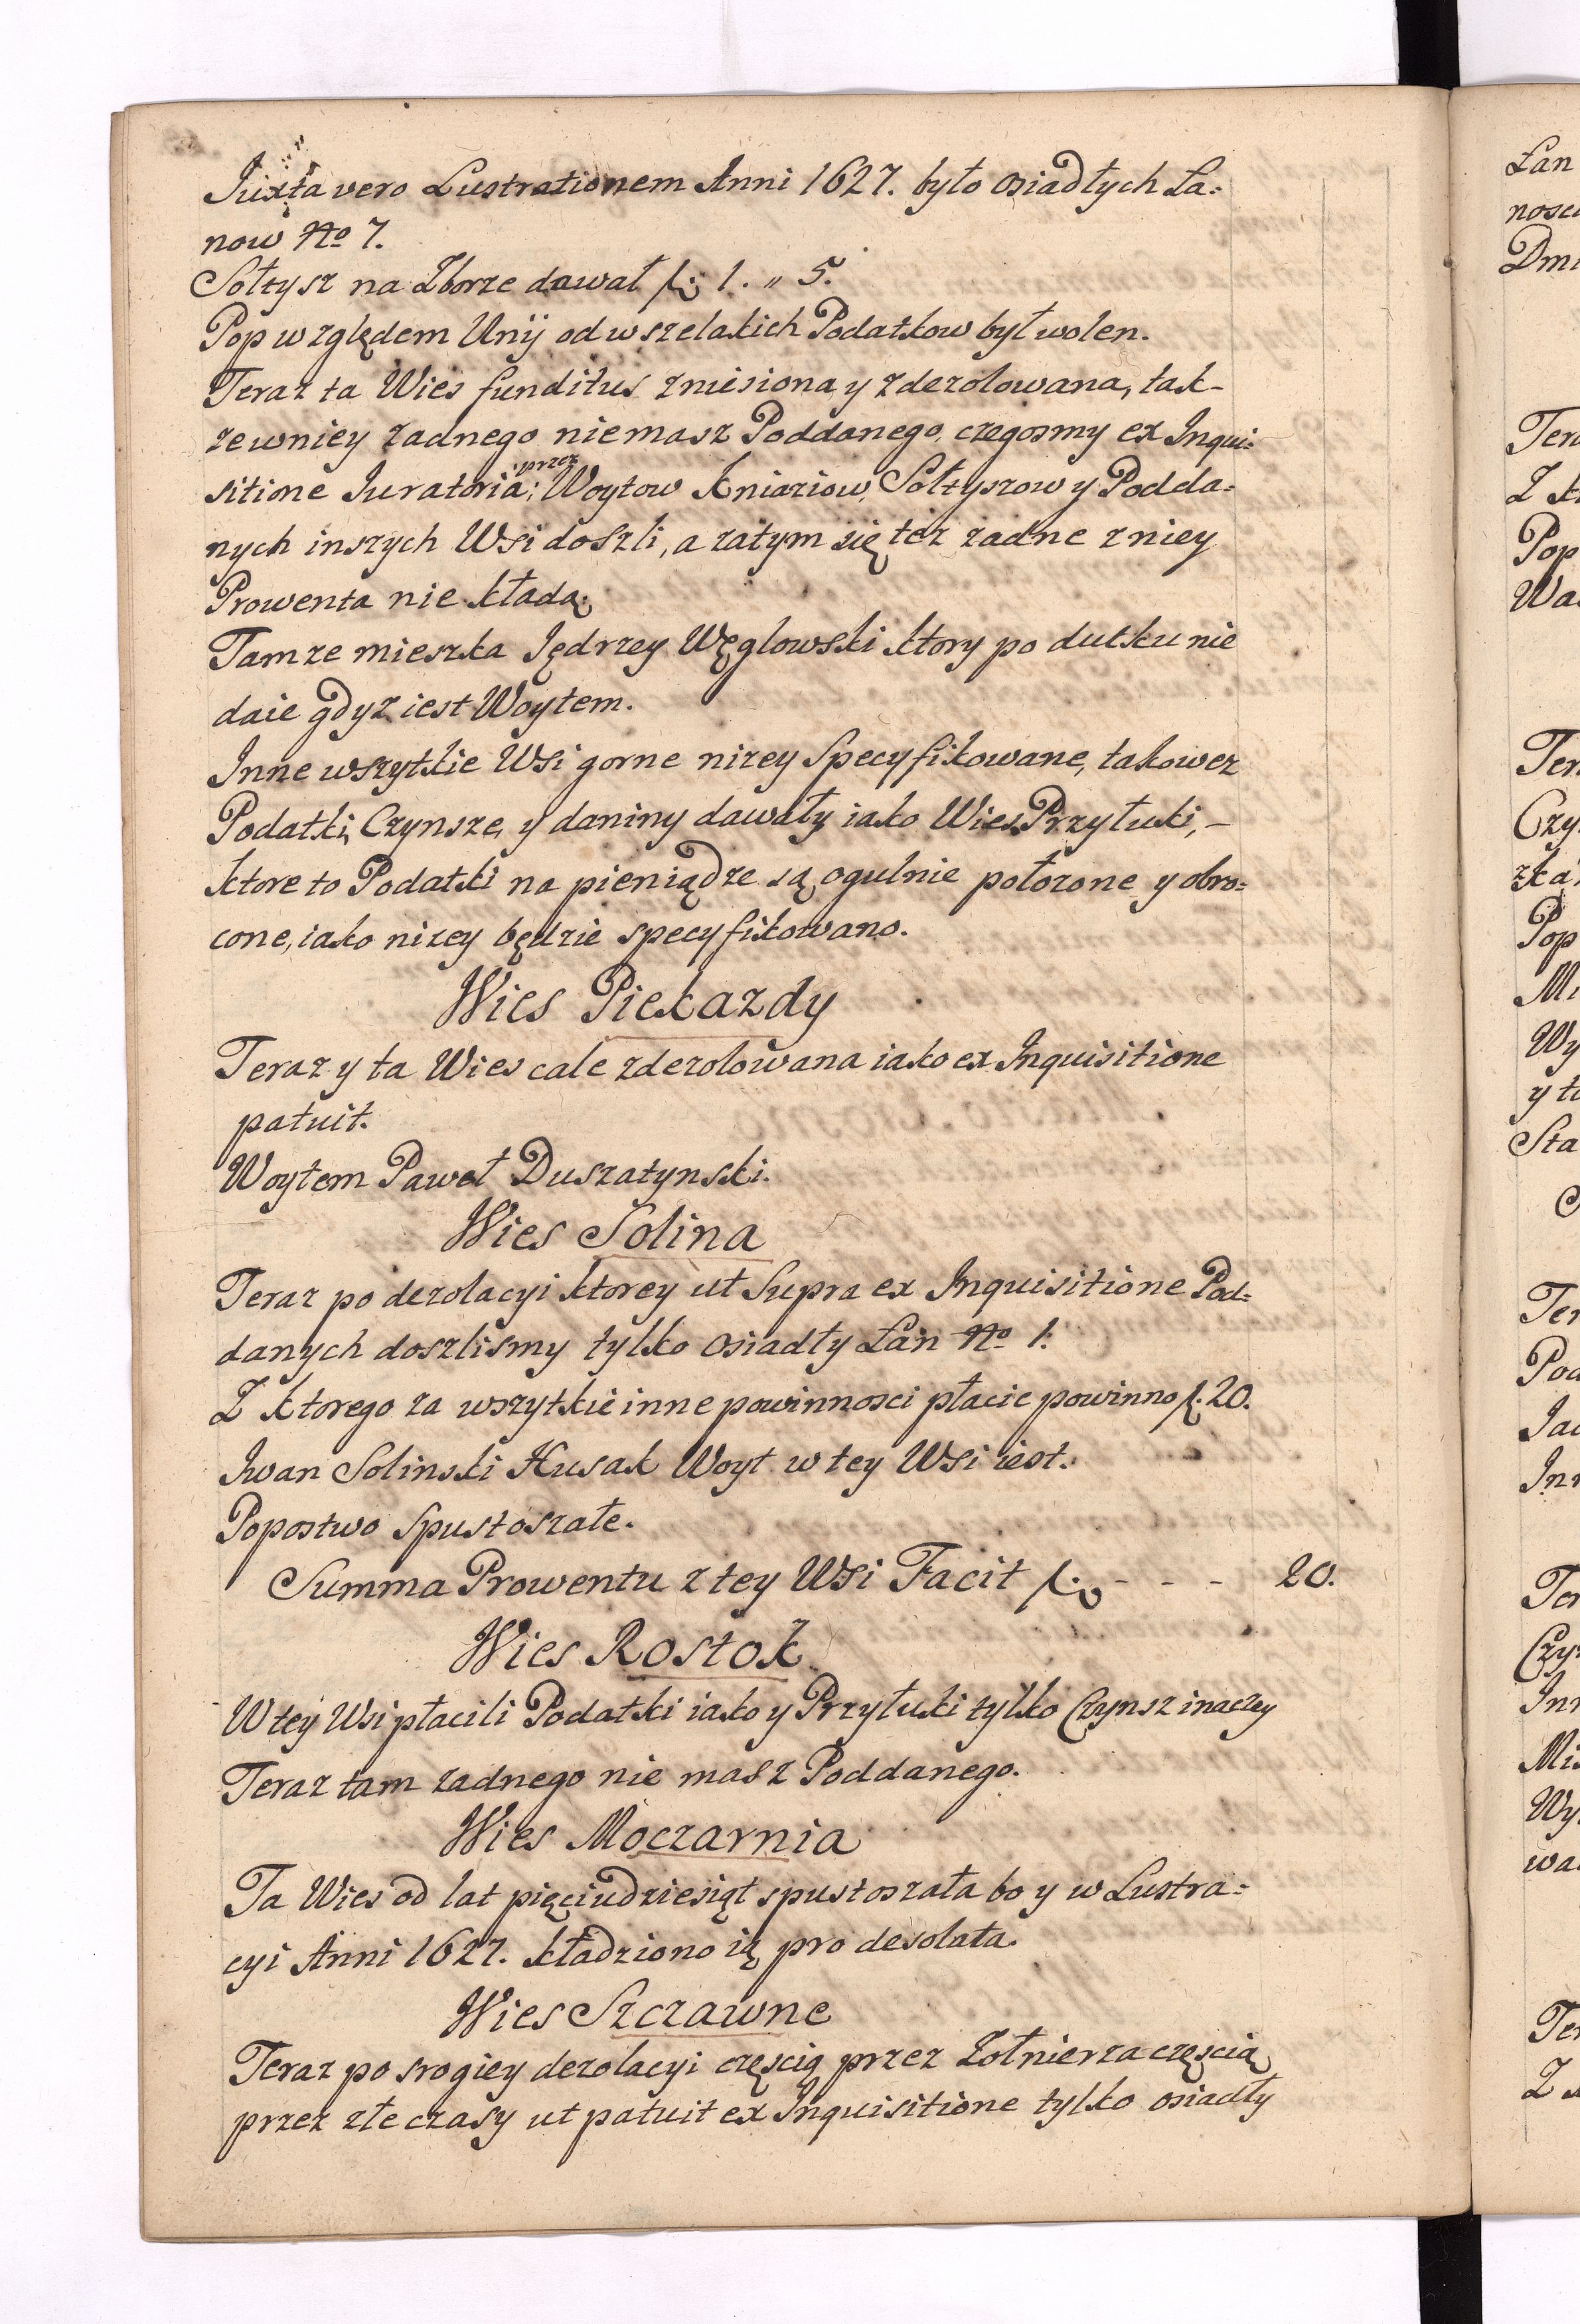 Juxta vero Lustrationem Anni 1627. było osiadłych Ła=
now No 7.
Sołtysz na Zborze dawał f: 1. „ 5.
Pop względem Unij od wszelakich Podatkow był wolen.
Teraz ta Wies funditus zniesiona y zdezolowana, tak-
ze wniey zadnego niemasz Poddanego, czegosmy ex Inqui=
sitione Juratoria; przez Woytow Kniaziow, Sołtyszow y Podda=
nych inszych Wsi doszli, a zatym się też zadne z niey
Prowenta nie kładą.
Tamze mieszka Jędrzey Węglowski ktory po dutku nie
daie gdyz iest Woytem.
Inne wszytkie Wsi gorne nizey Specyfikowane, takowez
Podatki, Czynsze, y daniny dawały iako Wies Przyłuki, -
ktore to Podatki na pieniądze są ogulnie połozone y obro=
cone, iako nizey będzie specyfikowano.
Wies Piekazdy
Teraz y ta Wies cale zdezolowana iako ex Inquisitione
patuit.
Woytem Paweł Duszatynski.
Wies Solina
Teraz po dezolacyi ktorey ut Supra ex Inquisitione Pod=
danych doszlismy tylko osiadły Łan No 1.
Z ktorego za wszytkie inne powinnosci płacic powinno f. 20.
Iwan Solinski Husak Woyt w tey Wsi iest.
Popostwo Spustoszałe.
Summa Prowentu z tey Wsi Facit f: - - - 20.
Wies Rostok
W tey Wsi płacili Podatki iako y Przyłuki tylko Czynsz inaczey
Teraz tam zadnego nie masz Poddanego.
Wies Moczarnia
Ta Wies od lat pięciudziesiąt spustoszała bo y w Lustra=
cyi Anni 1627. kładziono ią pro desolata.
Wies Szczawne
Teraz po srogiey dezolacyi częscią przez Zołnierza częscią
przez złe czasy ut patuit ex Inquisitione tylko osiadły